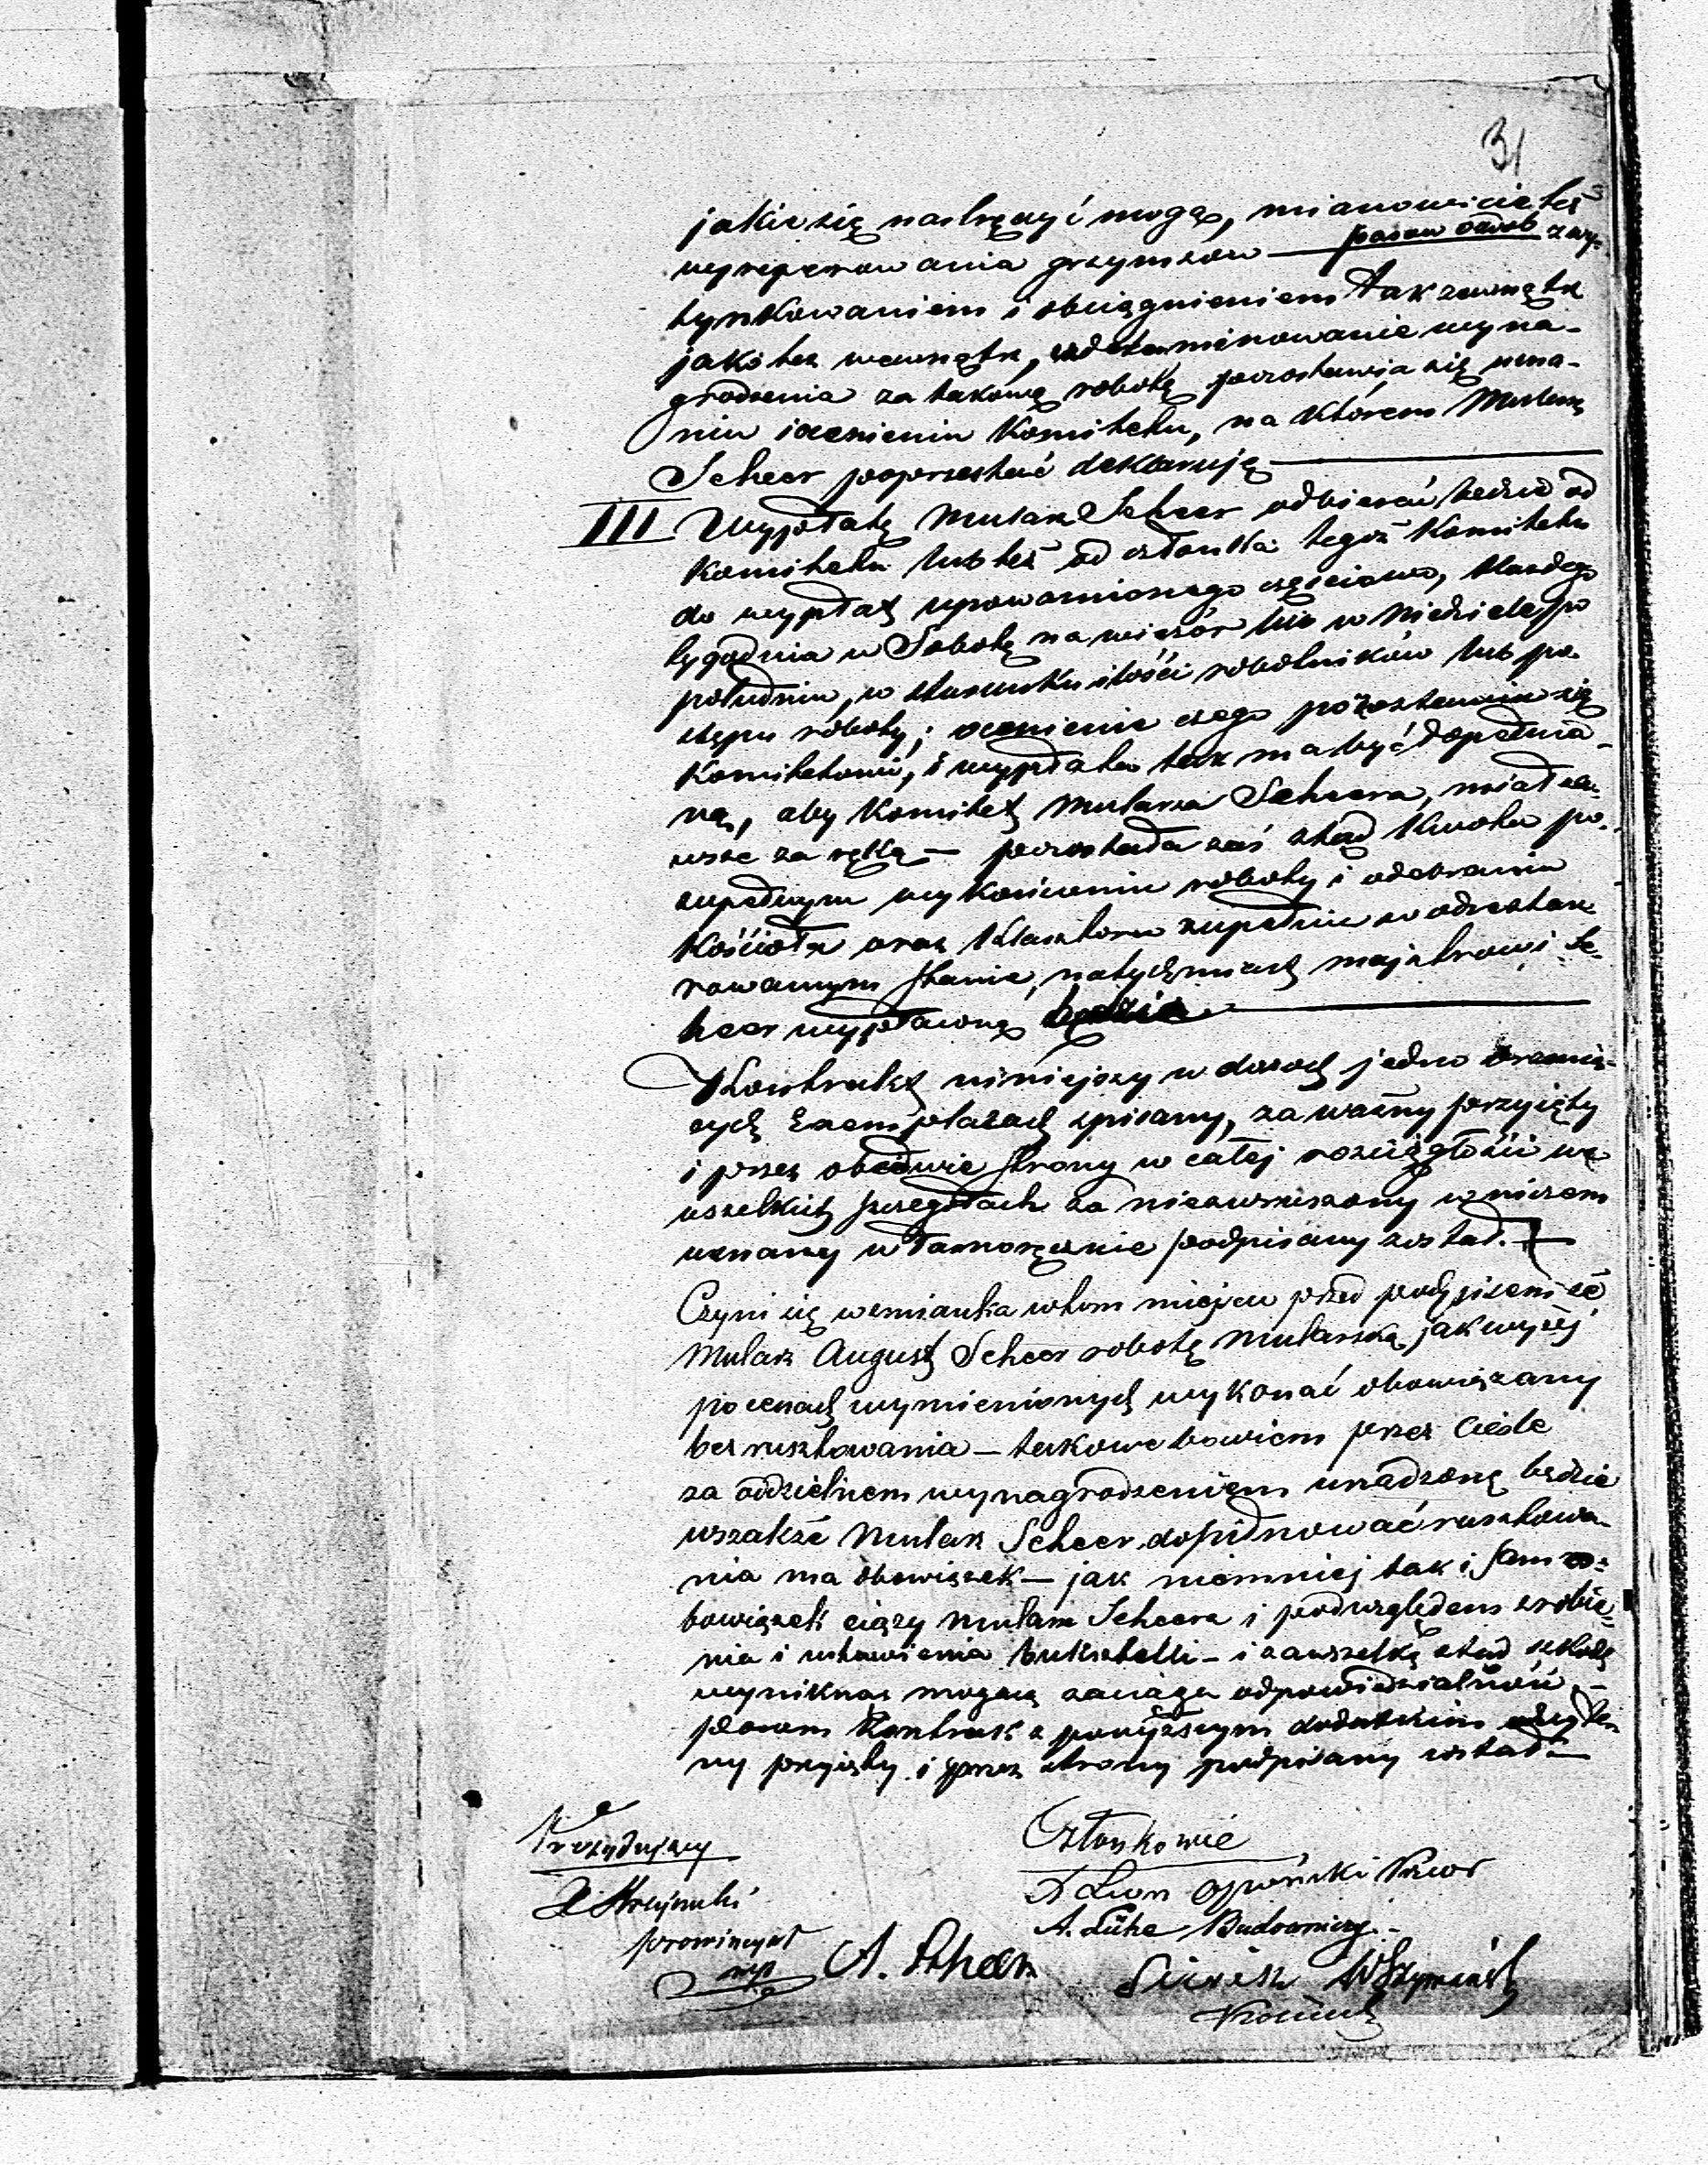 31
jakie się nastręczyć mogą, mianowicie też
wyreperowania grzymsów — z wy-
tynkowaniem i obciągnieniem tak zewnątrz
jako też wewnątrz, minowanie wyna-
grodzenia za takową robotę pozostawia się uzna-
niu i ocenieniu Komitetu, na którem Mularz
Scheer poprzestać deklaruje —
III Wypłatę Mularz Scheer odbierać będzie od
Komitetu lub też od członka tegoż Komitetu
do wypłat upoważnionego częściowo, każdego
tygodnia w Sobotę na wieczór lub w Niedzielę po
południu, w stosunku ilości robotników lub po-
stępu roboty; ocenienie czego pozostawia się
Komitetowi, i wypłata tak ma być dopełnia-
ną, aby Komitet Mularza Scheera, miał za-
wsze za ręką — pozostała zaś ztąd kwota po
zupełnym wykończeniu roboty i odebraniu
Kościoła oraz Klasztoru zupełnie w odrestau-
rowanym stanie, natychmiast majstrowi Sc-
heer wypłaconą będzie —
Kontrakt niniejszy w dwóch jedno brzmią-
cych Exemplarzach spisany, za ważny przyięty
i przez obiedwie strony w całej rozciągłości we
wszelkich szczegółach za niezwruszony w niczem
uznany własnoręcznie podpisany został. —
Czyni się wzmianka w tem miejscu przed podpisem że
Mularz August Scheer robotę mularską jak wyżej
po cenach wymienionych wykonać obowiązany
bez rusztowania — takowe bowiem przez Cieśle
za oddzielnem wynagrodzeniem urządzone będzie
wszakże Mularz Scheer dopilnować rusztowa-
nia ma obowiązek — jak niemniej tak i sam o-
bowiązek ciąży Mularza Scheera i pod względem zrobie-
nia i ustawienia buksztelli — i za wszelką ztąd szkodę
wyniknąć mogącą zaciąga odpowiedzialność —
poczem Kontrakt z powyższym dodatkiem
ny przyięty i przez strony podpisany został —
Prezydujący
Członkowie
prowincyał
A. Lüke Budowniczy
A. Scheer